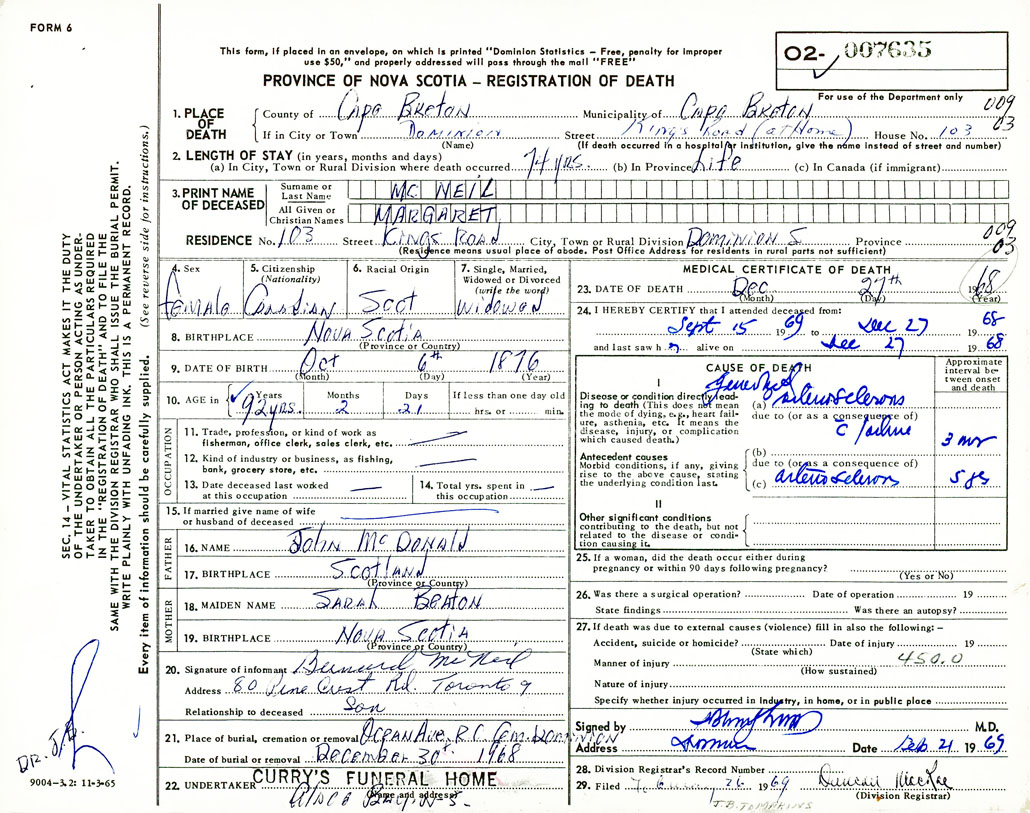 FORM 6
This form, if placed in an envelope, on which is printed "Dominion Statistics – Free, penalty for improper
use $50," and properly addressed will pass through the mail "FREE"
PROVINCE OF NOVA SCOTIA – REGISTRATION OF DEATH
02- 007635
For use of the Department only
009
03
1. PLACE OF DEATH
County of Cape Breton Municipality of Cape Breton
If in City or Town Dominion Street Kings Road (at Home) House No. 103
(Name) (If death occurred in a hospital or institution, give the name instead of street and number)
2. LENGTH OF STAY (in years, months and days)
(a) In City, Town or Rural Division where death occurred 74 yrs. (b) In Province Life (c) In Canada (if immigrant)
3. PRINT NAME OF DECEASED
Surname or Last Name MC NEIL
All Given or Christian Names MARGARET
RESIDENCE No. 103 Street Kings Road City, Town or Rural Division Dominion Province
009
03
(Residence means usual place of abode. Post Office Address for residents in rural parts not sufficient)
4. Sex
Female
5. Citizenship
(Nationality)
Canadian
6. Racial Origin
Scot
7. Single, Married,
Widowed or Divorced
(write the word)
Widowed
8. BIRTHPLACE Nova Scotia
(Province or Country)
9. DATE OF BIRTH Oct 6th 1876
(Month) (Day) (Year)
10. AGE in Years Months Days If less than one day old
92 yrs. 2 21 hrs. or min.
OCCUPATION
11. Trade, profession, or kind of work as
fisherman, office clerk, sales clerk, etc.
12. Kind of industry or business, as fishing,
bank, grocery store, etc.
13. Date deceased last worked
at this occupation
14. Total yrs. spent in
this occupation
15. If married give name of wife
or husband of deceased
FATHER
16. NAME John McDonald
17. BIRTHPLACE Scotland
(Province or Country)
MOTHER
18. MAIDEN NAME Sarah Beaton
19. BIRTHPLACE Nova Scotia
(Province or Country)
20. Signature of informant Bernard McNeil
Address 80 Pine Crest Rd. Toronto 9
Relationship to deceased Son
21. Place of burial, cremation or removal Ocean Ave. R.C. Cem. Dominion
Date of burial or removal December 30th 1968
22. UNDERTAKER CURRY'S FUNERAL HOME
(Name and address)
Glace Bay N.S.
MEDICAL CERTIFICATE OF DEATH
23. DATE OF DEATH Dec 27th 1968
(Month) (Day) (Year)
24. I HEREBY CERTIFY that I attended deceased from:
Sept 15 1969 to Dec 27 1968
and last saw h alive on Dec 27 1968
CAUSE OF DEATH
Approximate
interval be-
tween onset
and death
I
Disease or condition directly lead-
ing to death (This does not mean
the mode of dying, e.g., heart fail-
ure, asthenia, etc. It means the
disease, injury, or complication
which caused death.)
(a)
due to (or as a consequence of)
failure
Antecedent causes
Morbid conditions, if any, giving
rise to the above cause, stating
the underlying condition last.
(b)
due to (or as a consequence of)
(c)
II
Other significant conditions
contributing to the death, but not
related to the disease or condi-
tion causing it.
25. If a woman, did the death occur either during
pregnancy or within 90 days following pregnancy?
(Yes or No)
26. Was there a surgical operation? Date of operation 19
State findings Was there an autopsy?
27. If death was due to external causes (violence) fill in also the following: –
Accident, suicide or homicide? Date of injury 19
(State which)
Manner of injury 450.0
(How sustained)
Nature of injury
Specify whether injury occurred in Industry, in home, or in public place
Signed by M.D.
Address Date Feb 21 1969
28. Division Registrar's Record Number
29. Filed 26 1969 Duncan
(Division Registrar)
J.B. TOMPKINS
SEC. 14 – VITAL STATISTICS ACT MAKES IT THE DUTY
OF THE UNDERTAKER OR PERSON ACTING AS UNDER-
TAKER TO OBTAIN ALL THE PARTICULARS REQUIRED
IN THE "REGISTRATION OF DEATH" AND TO FILE THE
SAME WITH THE DIVISION REGISTRAR WHO SHALL ISSUE THE BURIAL PERMIT.
WRITE PLAINLY WITH UNFADING INK. THIS IS A PERMANENT RECORD.
Every item of information should be carefully supplied. (See reverse side for instructions.)
DR. J.B.
9004–3.2: 11-3-65